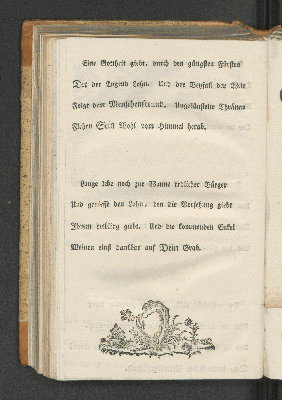 Eine Gottheit giebt, durch den gütigsten Fürsten
Der der Tugend Lohn. Und der Beyfall der Welt
Folgt dem Menschenfreund. Ungekünstelte Thränen
Flehen Sein Wohl vom Himmel herab.
Lange lebe noch zur Wonne redlicher Bürger
Und geniesse den Lohn, den die Vorsehung giebt
Ihrem Liebling giebt. Und die kommenden Enkel
Weinen einst dankbar auf Dein Grab.